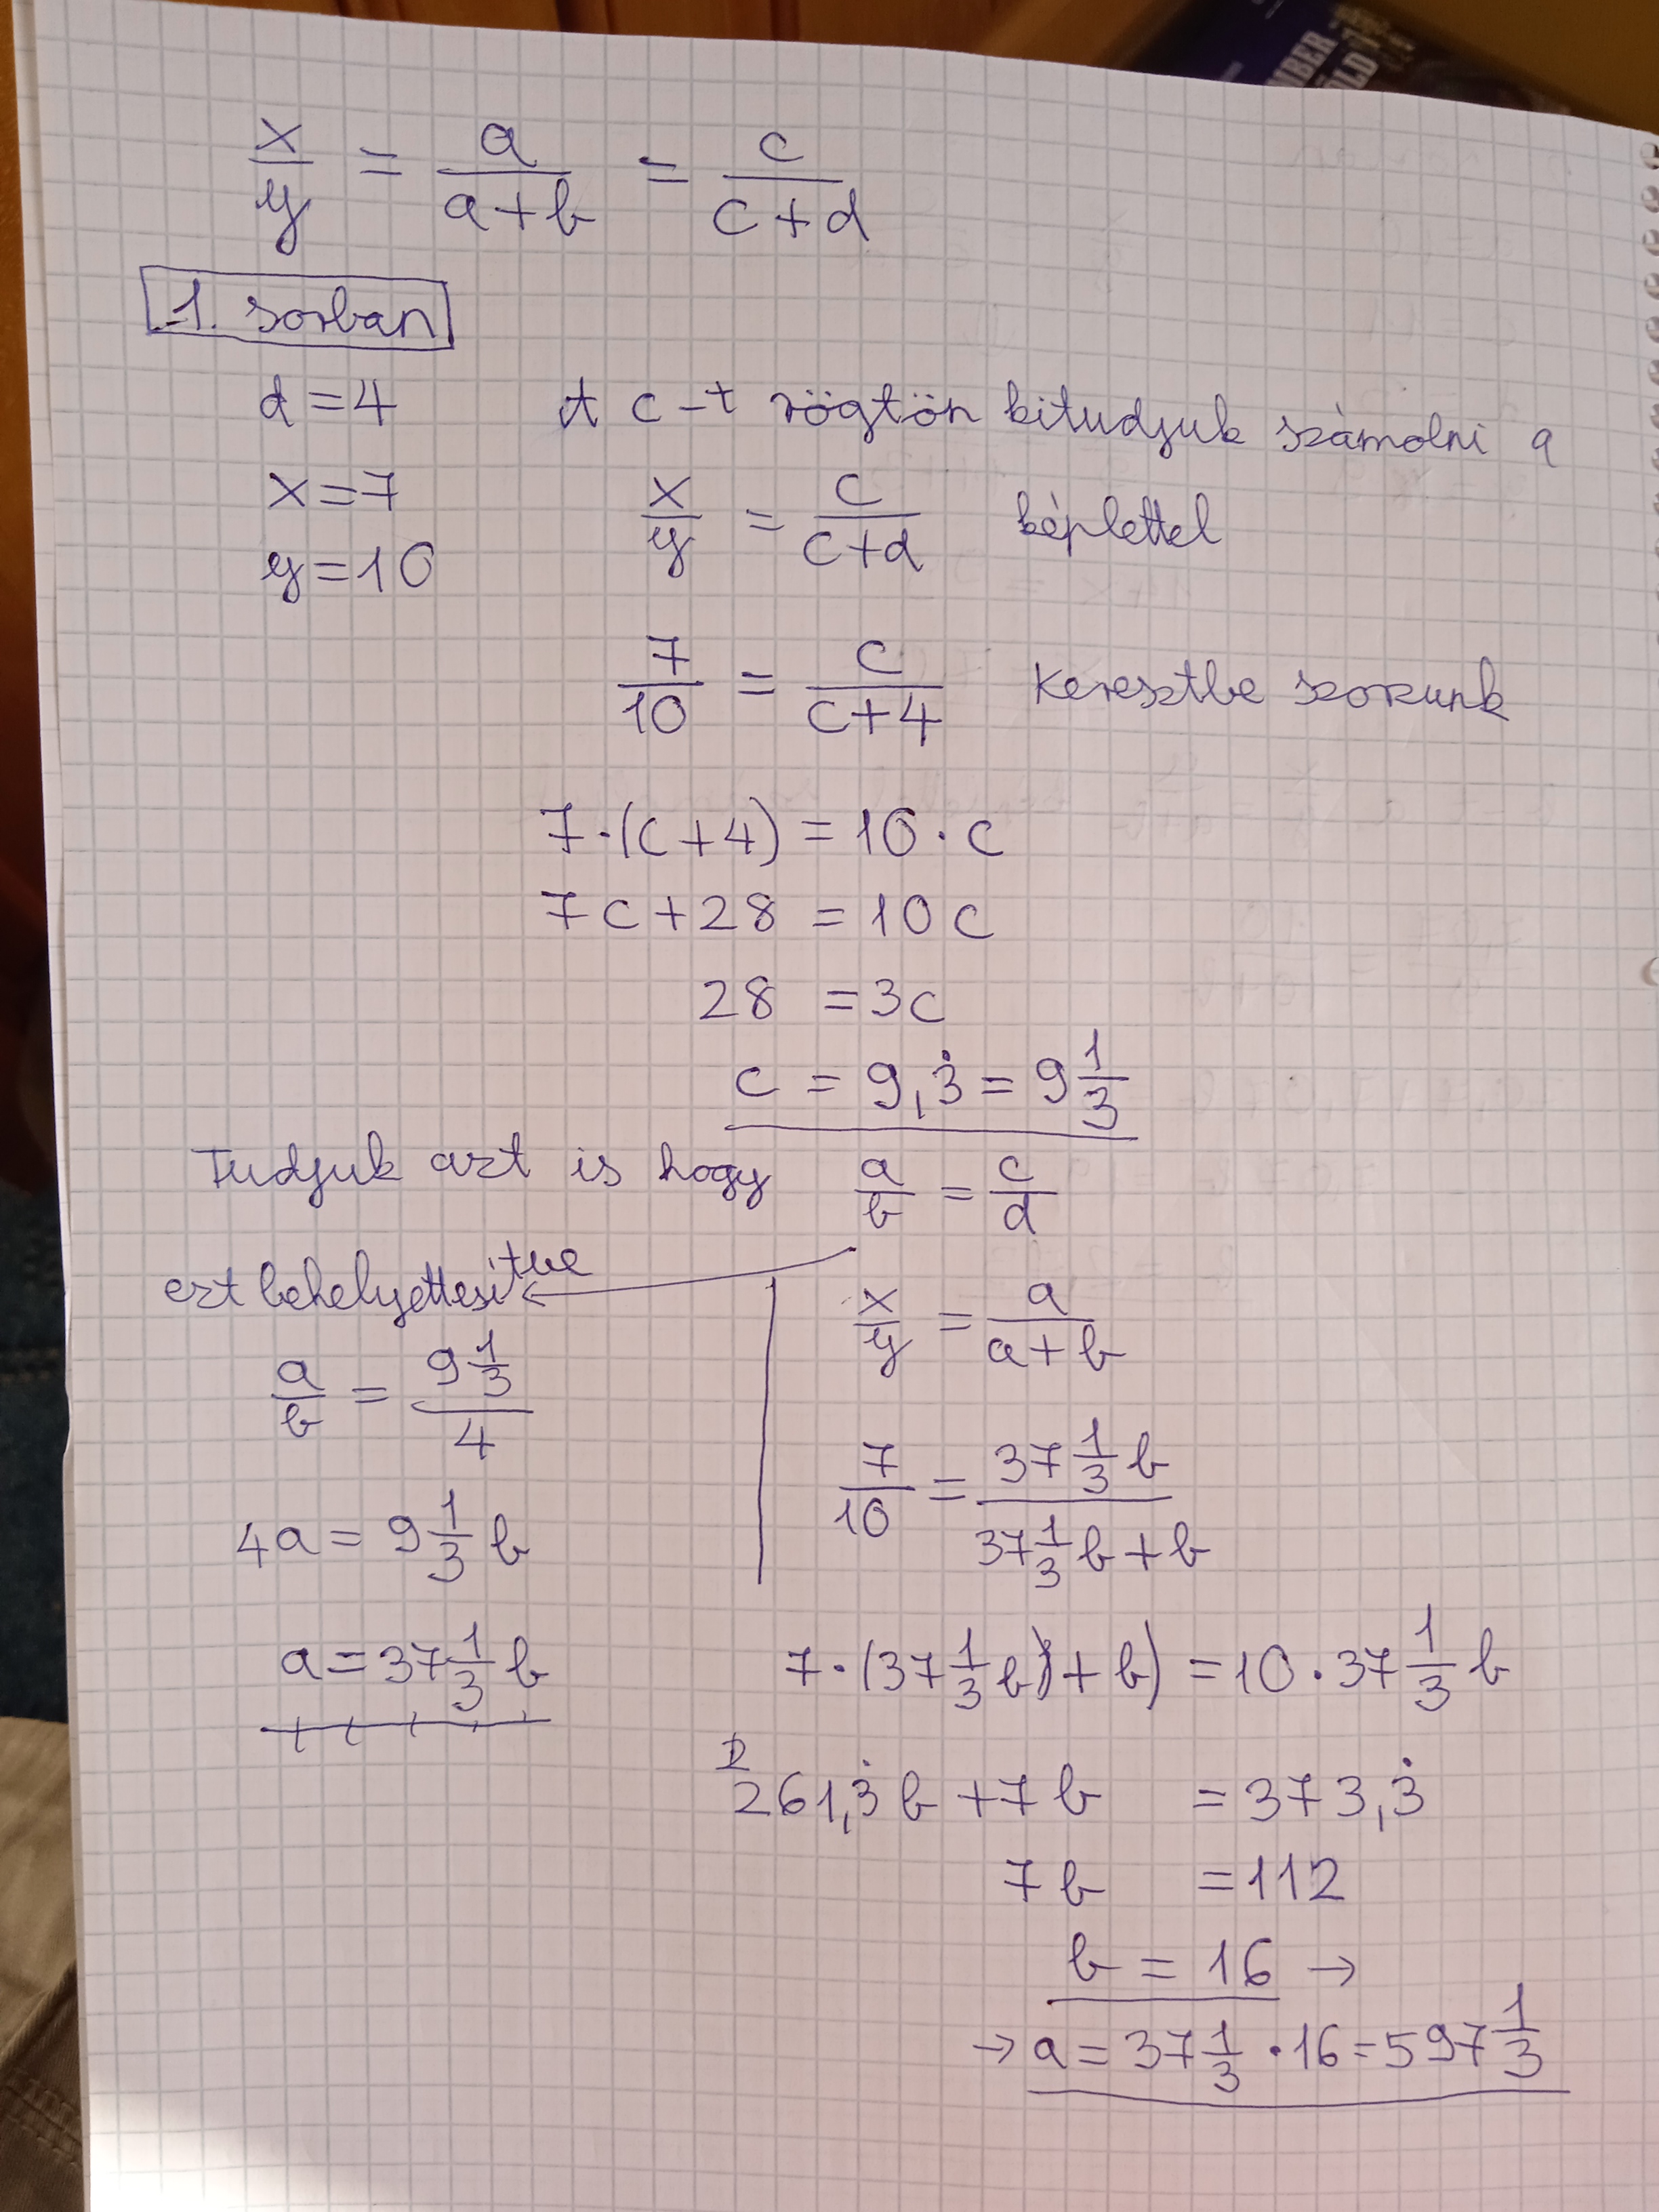 x/y = a/(a+b) = c/(c+d)
1. sorban
d=4 A c-t rögtön kitudjuk számolni a
x=7 x/y = c/(c+d) képlettel
y=10
7/10 = c/(c+4) Keresztbe szorzunk
7·(c+4) = 10·c
7c+28 = 10c
28 = 3c
c = 9,3̇ = 9 1/3
Tudjuk azt is hogy a/b = c/d
ezt behelyettesitve
a/b = (9 1/3)/4
4a = 9 1/3 b
a = 37 1/3 b
x/y = a/(a+b)
7/10 = (37 1/3 b)/(37 1/3 b + b)
7·(37 1/3 b)+b) = 10·37 1/3 b
261,3̇ b +7b = 373,3̇
7b = 112
b = 16 →
→ a = 37 1/3 · 16 = 597 1/3